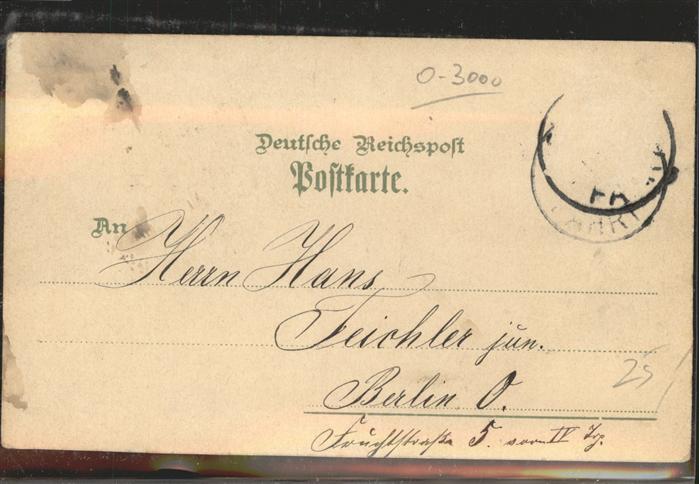 0-3000
Deutsche Reichspost
Postkarte.
An
Herrn Hans
Teichler jun.
Berlin O.
Fruchtstraße 5. vorn IV Trp.
25